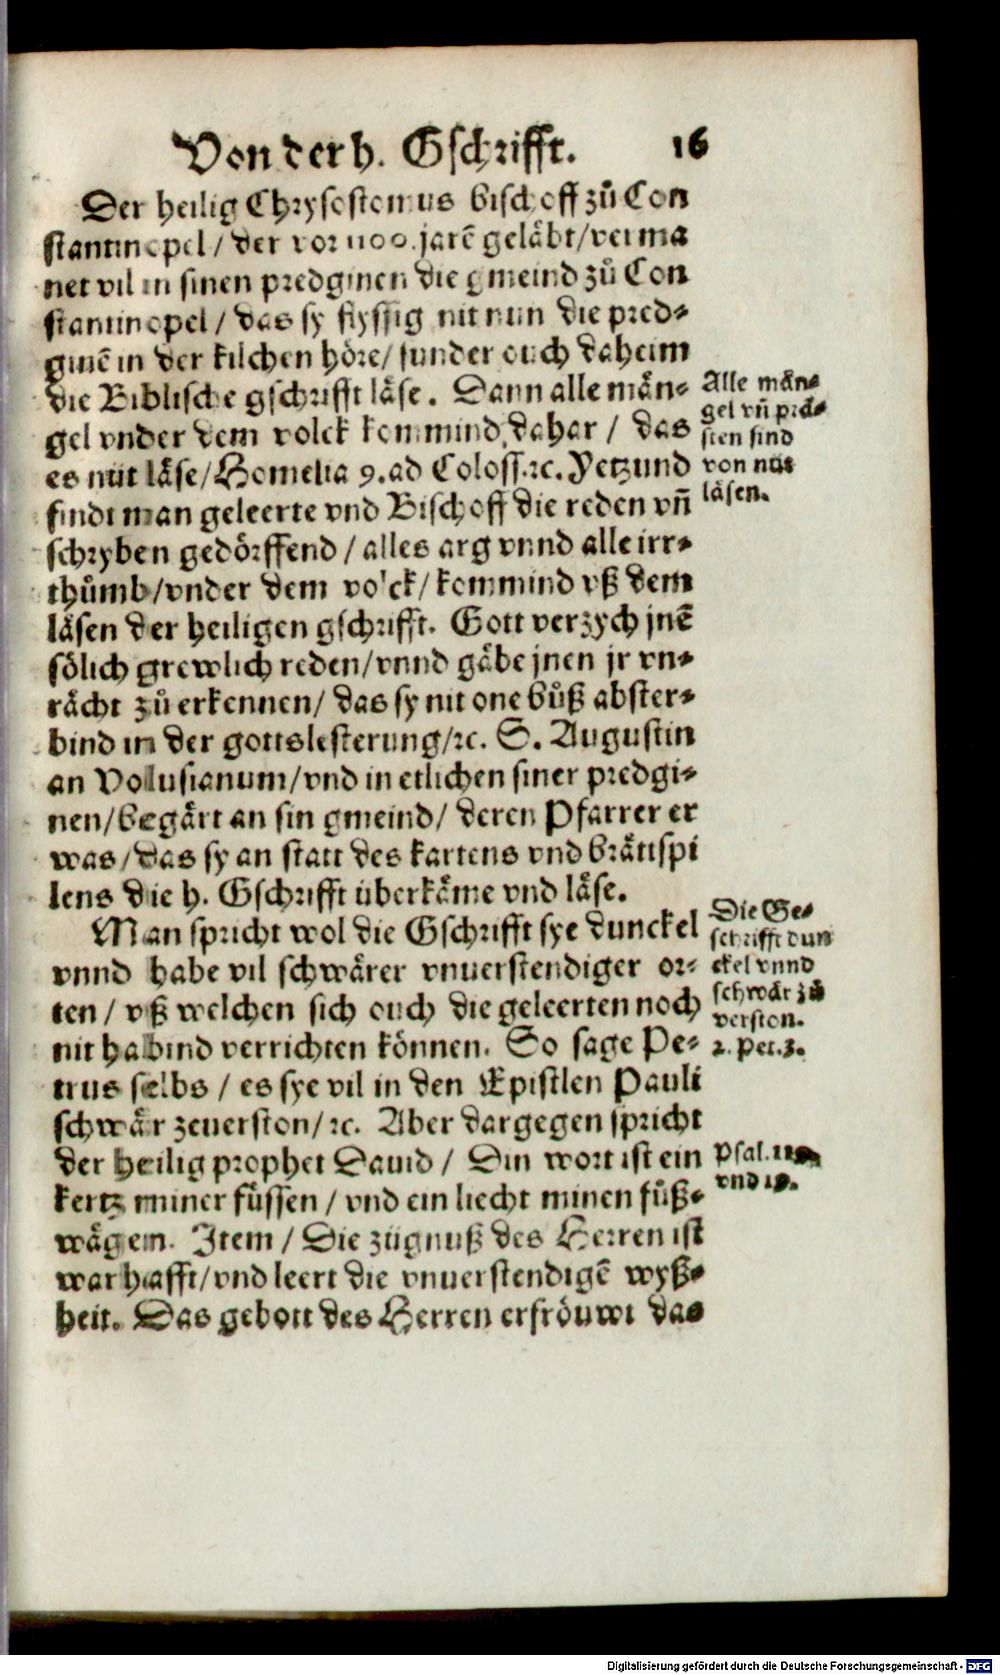 Von der h. Gschrifft. 16
Der heilig Chrysostomus bischoff zů Con
stantinopel / der vor 1100. jarẽ geläbt / verma
net vil in sinen predginen die gmeind zů Con
stantinopel / das sy flyssig nit nun die pred⸗
ginẽ in der kilchen höre / sunder ouch daheim
die Biblische gschrifft läse. Dann alle män⸗
gel vnder dem volck kommind dahar / das
es nüt läse / Homelia 9. ad Coloss. ꝛc. Yetzund
findt man geleerte vnd Bischoff die reden vñ
schryben gedörffend / alles arg vnnd alle irr⸗
thůmb / vnder dem volck / kommind vß dem
läsen der heiligen gschrifft. Gott verzych jnẽ
sölich grewlich reden / vnnd gäbe jnen jr vn⸗
rächt zů erkennen / das sy nit one bůß abster⸗
bind in der gottslesterung / ꝛc. S. Augustin
an Volusianum / vnd in etlichen siner predgi⸗
nen / begärt an sin gmeind / deren Pfarrer er
was / das sy an statt des kartens vnd brättspi
lens die h. Gschrifft überkäme vnd läse.
Man spricht wol die Gschrifft sye dunckel
vnnd habe vil schwärer vnuerstendiger or⸗
ten / vß welchen sich ouch die geleerten noch
nit habind verrichten können. So sage Pe⸗
trus selbs / es sye vil in den Epistlen Pauli
schwär zeuerston / ꝛc. Aber dargegen spricht
der heilig prophet Dauid / Din wort ist ein
kertz miner füssen / vnd ein liecht minen fůß⸗
wägen. Item / Die zügnuß des Herren ist
warhafft / vnd leert die vnuerstendigẽ wyß⸗
heit. Das gebott des Herren erfröuwt das
Alle män⸗
gel vñ präs⸗
sten sind
von nüt
läsen.
Die Ge⸗
schrifft dun
ckel vnnd
schwär zů
verston.
2. Pet. 3.
Psal. 119.
vnd 19.
Digitalisierung gefördert durch die Deutsche Forschungsgemeinschaft - DFG